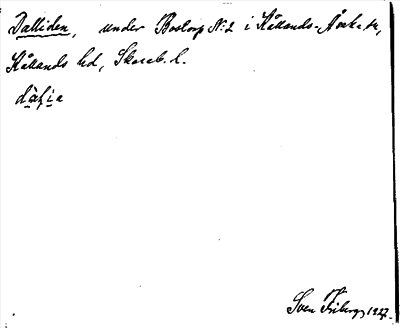 Dalliden, under Bostorp N:2 i Kållands-Åsaka sn,
Kållands hd, Skarab. l.
dàlia
Sven Friberg 1927.